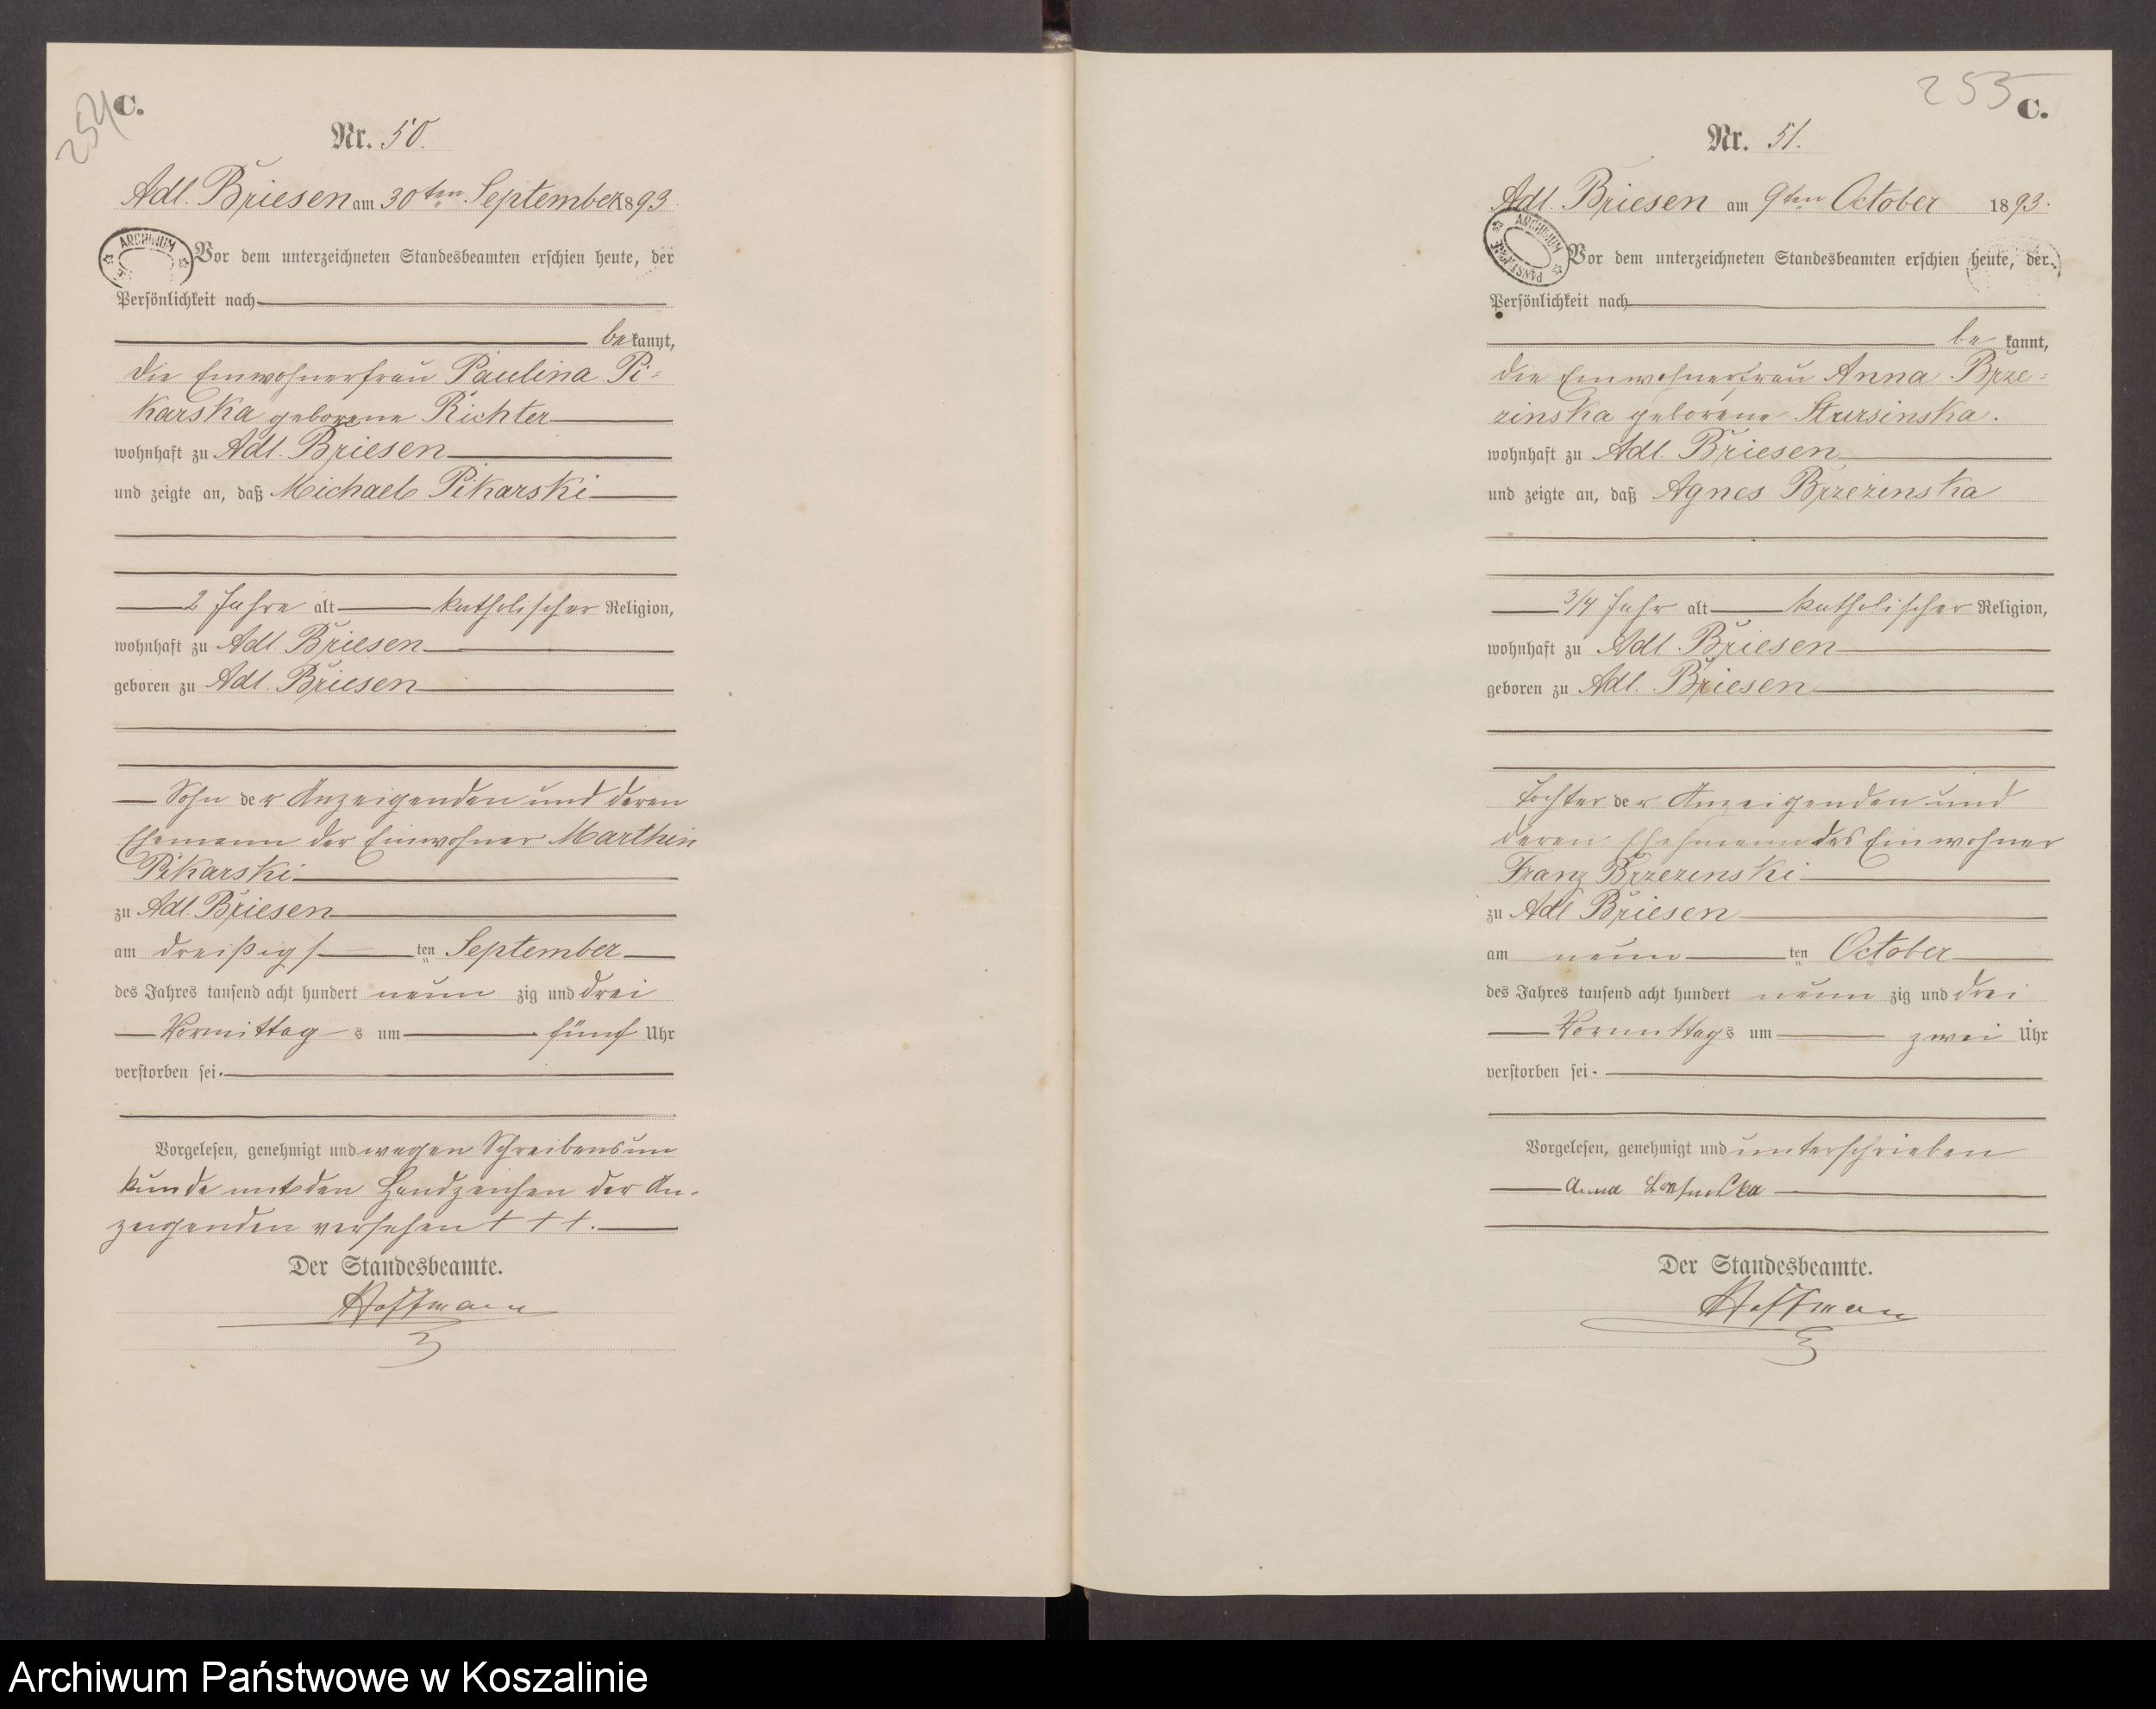 254
C.
Nr. 50.
Adl. Briesen am 30ten September 1893.
ARCHIWUM
Vor dem unterzeichneten Standesbeamten erschien heute, der
Persönlichkeit nach
bekannt,
die Einwohnerfrau Paulina Pi-
karska geborene Richter
wohnhaft zu Adl. Briesen
und zeigte an, daß Michael Pikarski
2 Jahre alt katholischer Religion,
wohnhaft zu Adl. Briesen
geboren zu Adl. Briesen
Sohn der Anzeigenden und deren
Ehemann der Einwohner Marthin
Pikarski
zu Adl. Briesen
am dreißigs ten September
des Jahres tausend acht hundert neun zig und drei
Vormittag s um fünf Uhr
verstorben sei.
Vorgelesen, genehmigt und wegen Schreibensun
kunde mit den Handzeichen der An-
zeigenden versehen + + +.
Der Standesbeamte.
Hoffmann
255
C.
Nr. 51.
Adl. Briesen am 9ten October 1893.
ARCHIWUM PAŃSTWOWE
Vor dem unterzeichneten Standesbeamten erschien heute, der
Persönlichkeit nach
be kannt,
die Einwohnerfrau Anna Brze-
zinska geborene Stursinska.
wohnhaft zu Adl. Briesen
und zeigte an, daß Agnes Brzezinska
3/4 Jahr alt katholischer Religion,
wohnhaft zu Adl. Briesen
geboren zu Adl. Briesen
Tochter der Anzeigenden und
deren Ehehmann des Einwohner
Franz Brzezinski
zu Adl Briesen
am neun ten October
des Jahres tausend acht hundert neun zig und drei
Vormittags um zwei Uhr
verstorben sei.
Vorgelesen, genehmigt und unterschrieben
Anna
Der Standesbeamte.
Hoffmann
Archiwum Państwowe w Koszalinie